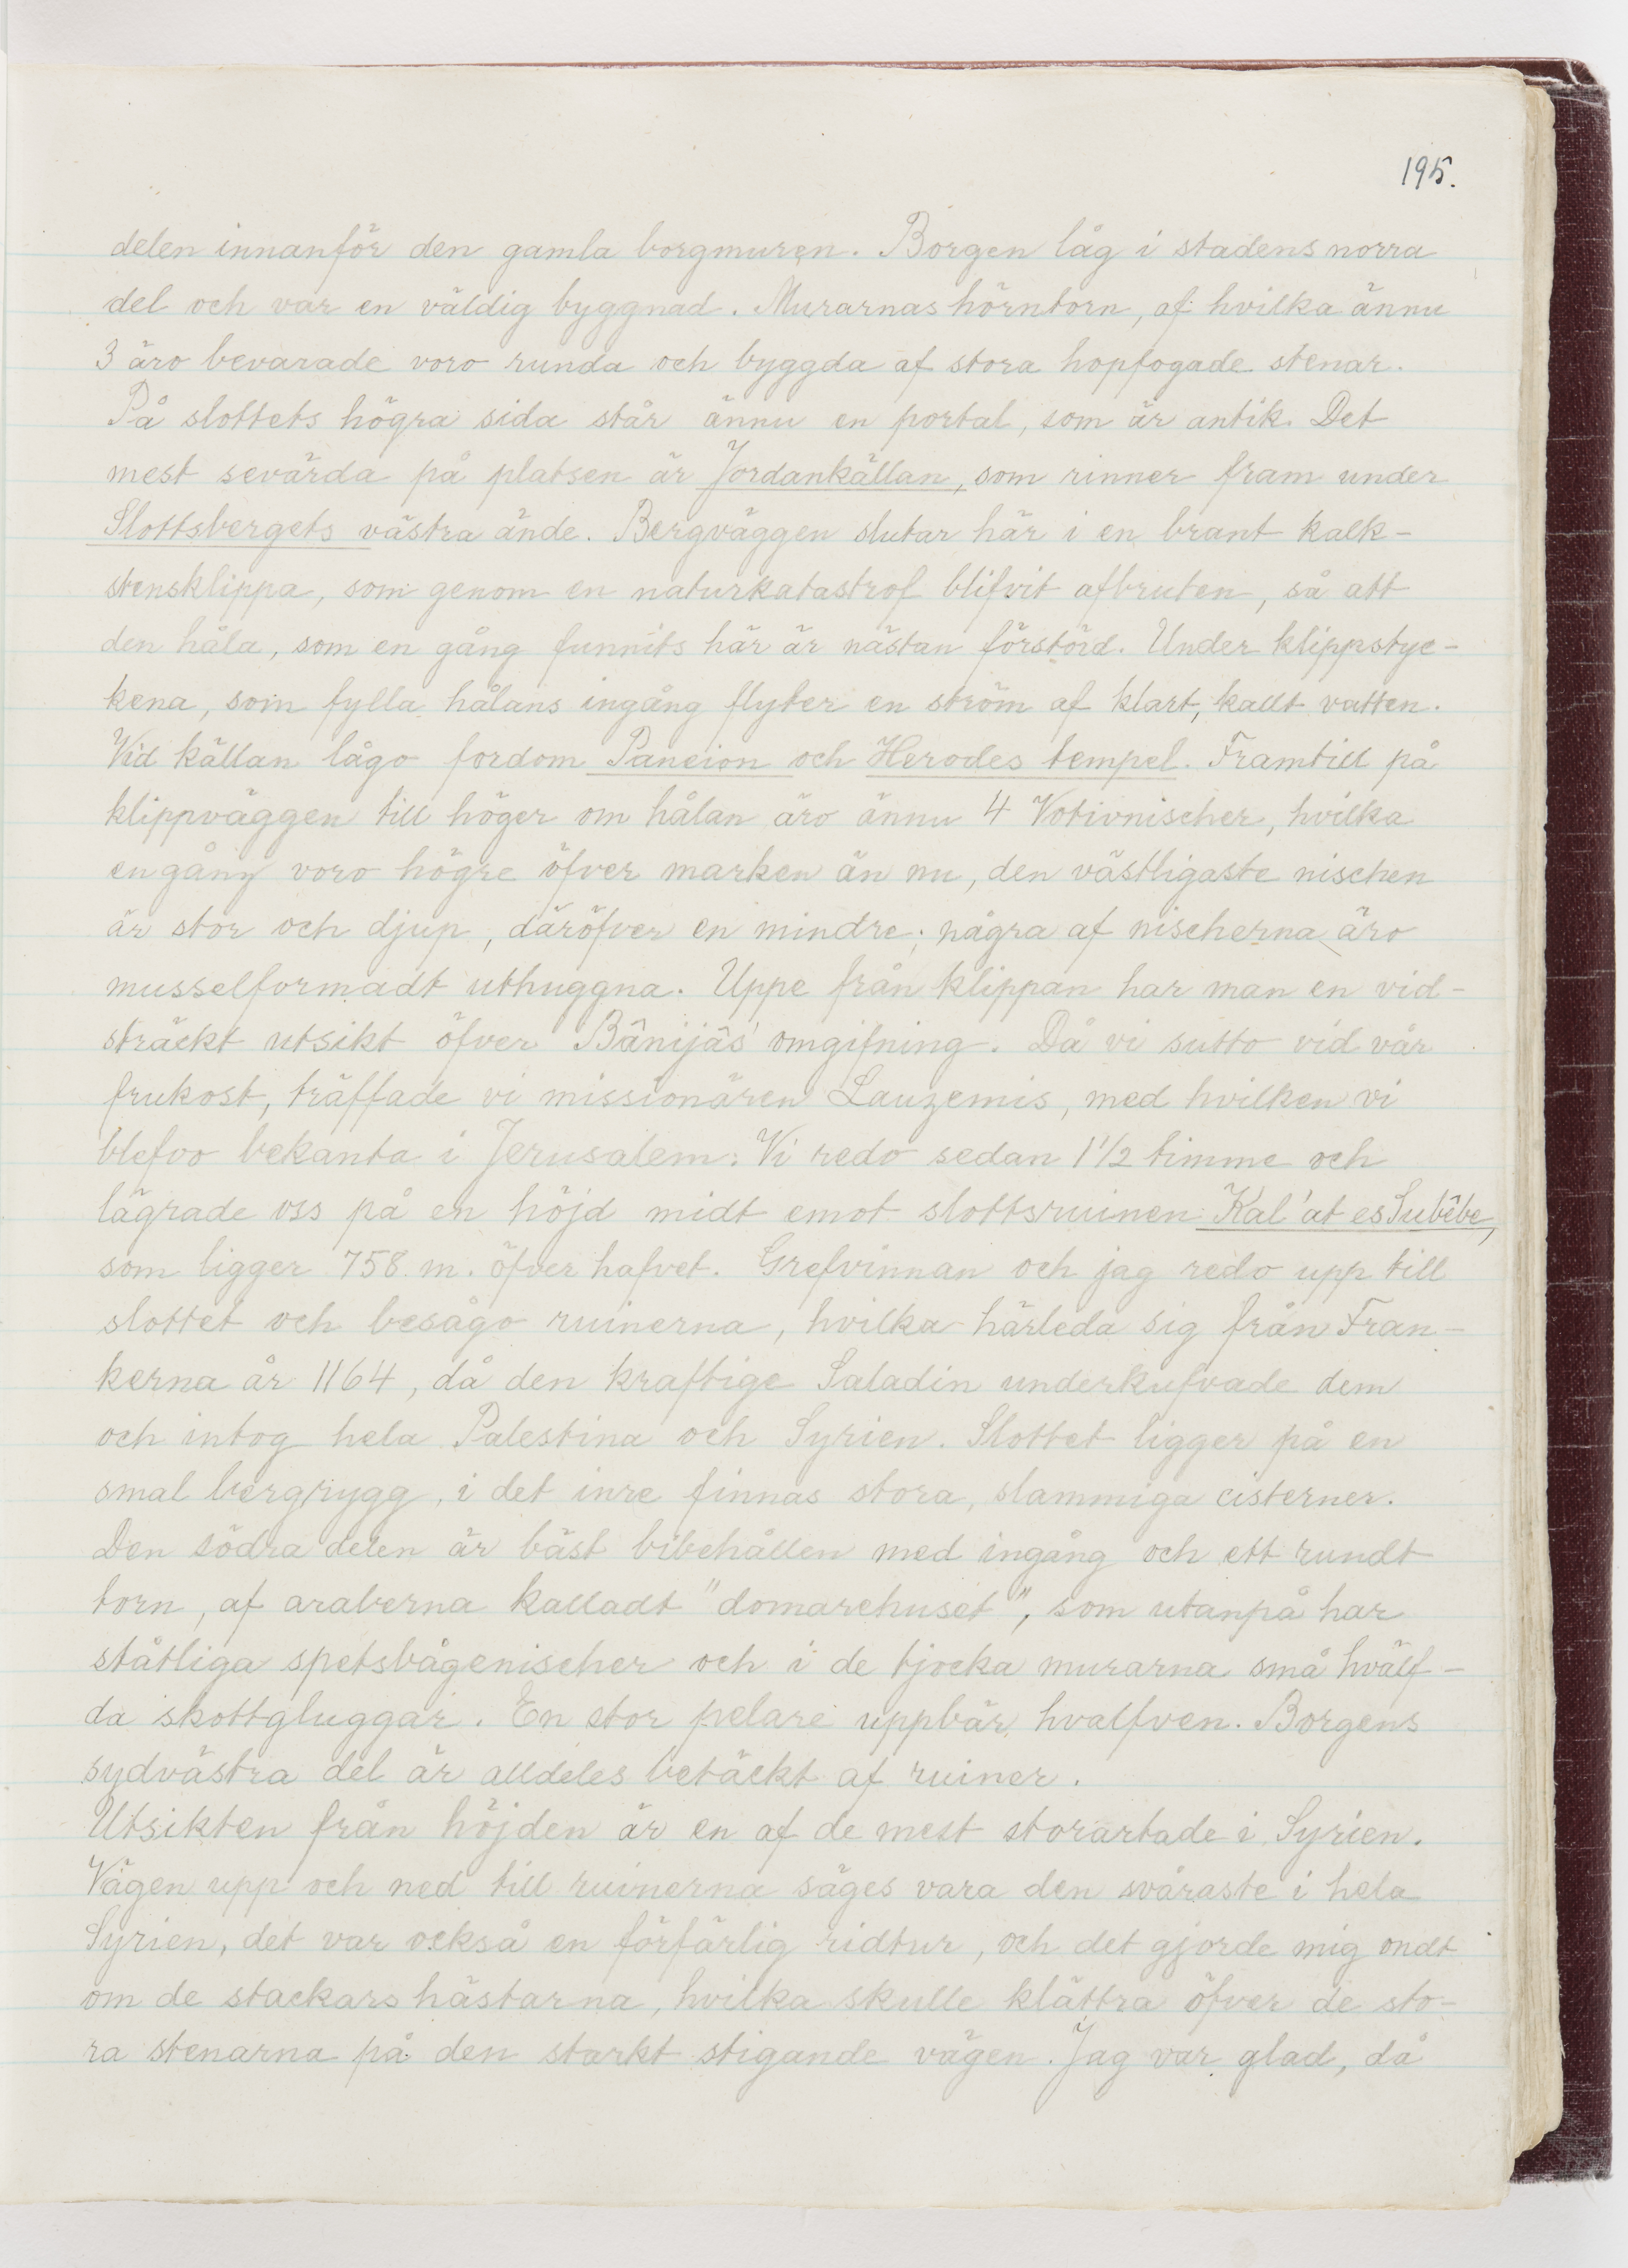 195.
delen innanför den gamla borgmuren. Borgen låg i stadens norra
del och var en väldig byggnad. Murarnas hörntorn, af hvilka ännu
3 äro bevarade voro runda och byggda af stora hopfogade stenar.
På slottets högra sida står ännu en portal, som är antik. Det
mest sevärda på platsen är Jordankällan, som rinner fram under
Slottsbergets västra ände. Bergväggen slutar här i en brant kalk-
stensklippa, som genom en naturkatastrof blifvit afbruten, så att
den håla, som en gång funnits här är nästan förstörd. Under klippstyc-
kena, som fylla hålans ingång flyter en ström af klart, kallt vatten.
Vid källan lågo fordom Paneion och Herodes tempel. Framtill på
klippväggen till höger om hålan äro ännu 4 Votivnischer, hvilka
en gång voro högre öfver marken än nu, den västligaste nischen
är stor och djup, däröfver en mindre; några af nischerna äro
musselformadt uthuggna. Uppe från klippan har man en vid-
sträckt utsikt öfver Bânijâs' omgifning. Då vi sutto vid vår
frukost, träffade vi missionären Lauzemis, med hvilken vi
blefvo bekanta i Jerusalem. Vi redo sedan 1 1/2 timme och
lägrade oss på en höjd midt emot slottsruinen Kal'at es Subêbe,
som ligger 758 m. öfver hafvet. Grefvinnan och jag redo upp till
slottet och besågo ruinerna, hvilka härleda sig från Fran-
kerna år 1164, då den kraftige Saladin underkufvade dem
och intog hela Palestina och Syrien. Slottet ligger på en
smal bergrygg, i det inre finnas stora, slammiga cisterner.
Den södra delen är bäst bibehållen med ingång och ett rundt
torn, af araberna kalladt "domarehuset", som utanpå har
ståtliga spetsbågenischer och i de tjocka murarna små hvälf-
da skottgluggar. En stor pelare uppbär hvalfven. Borgens
sydvästra del är alldeles betäckt af ruiner.
Utsikten från höjden är en af de mest storartade i Syrien.
Vägen upp och ned till ruinerna säges vara den svåraste i hela
Syrien, det var också en förfärlig ridtur, och det gjorde mig ondt
om de stackars hästarna, hvilka skulle klättra öfver de sto-
ra stenarna på den starkt stigande vägen. Jag var glad, då